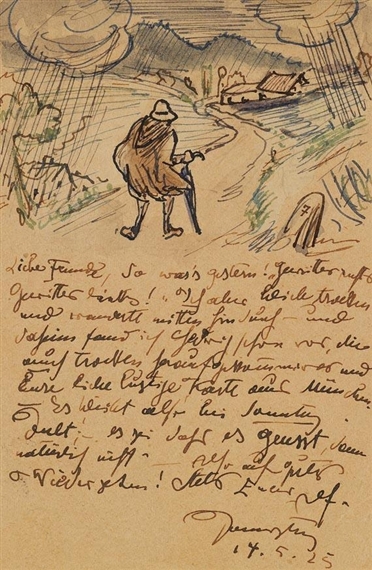 7
Liebe Freunde, so war's gestern! Gewitter rechts
Gewitter links! Ich aber blieb trocken
und wanderte mitten hindurch – und
daheim fand ich schon vor, die
auch trocken heraufgekommen war und
Eure liebe lustige Karte aus München.
– Es bleibt also bei Sonntag
Dult! – es sei daß es gewit, dann
natürlich nicht. – also auf gutes
Wiedersehen! Stets Euer
14. 5. 25